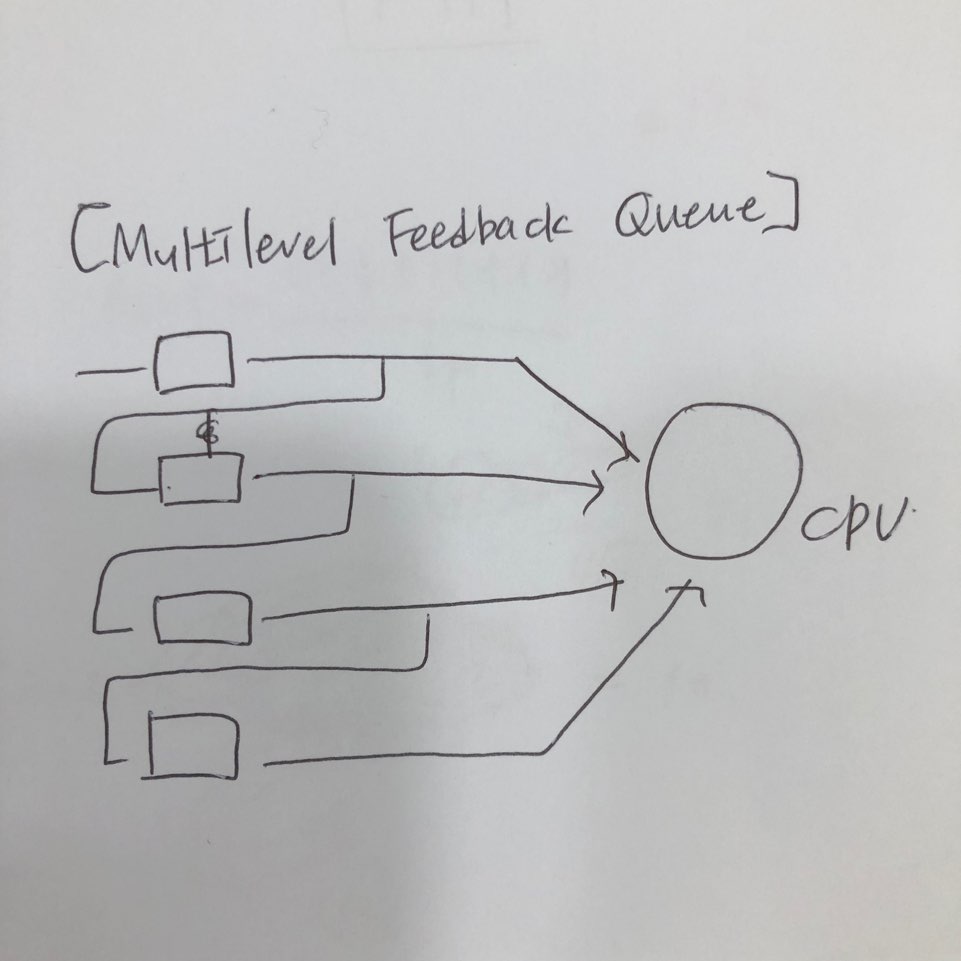 [Multilevel Feedback Queue]
CPU